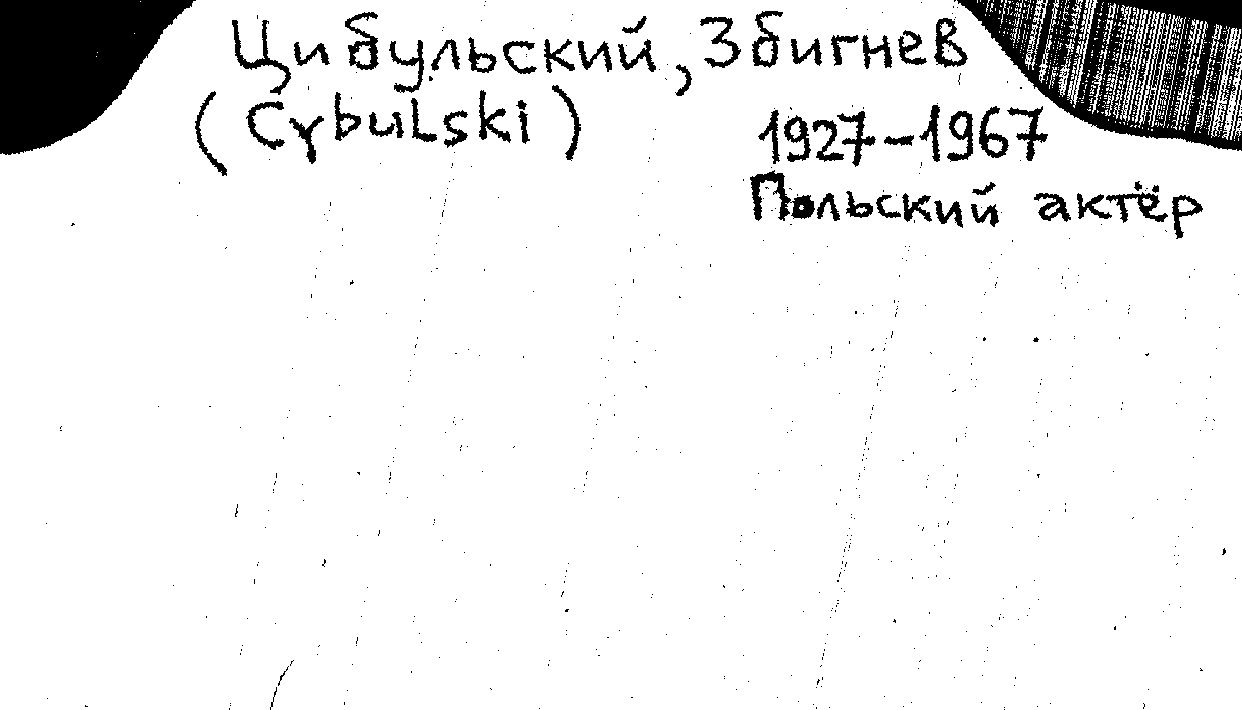 Цибульский, Збигнев
(Cybulski)
1927-1967
Польский актёр